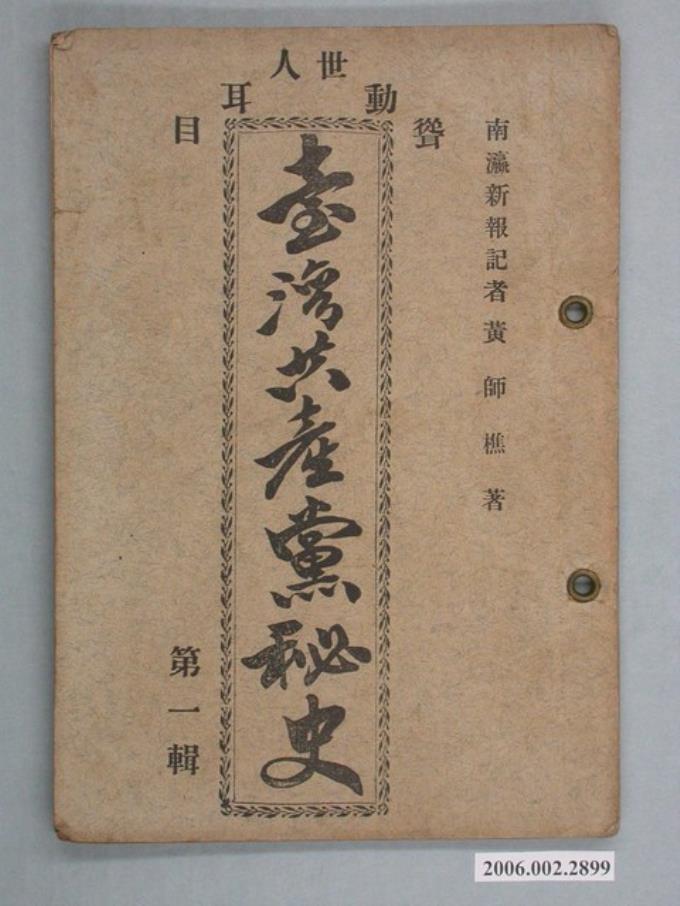 聳動世人耳目
南瀛新報記者黃師樵著
臺灣共產黨秘史
第一輯
2006.002.2899